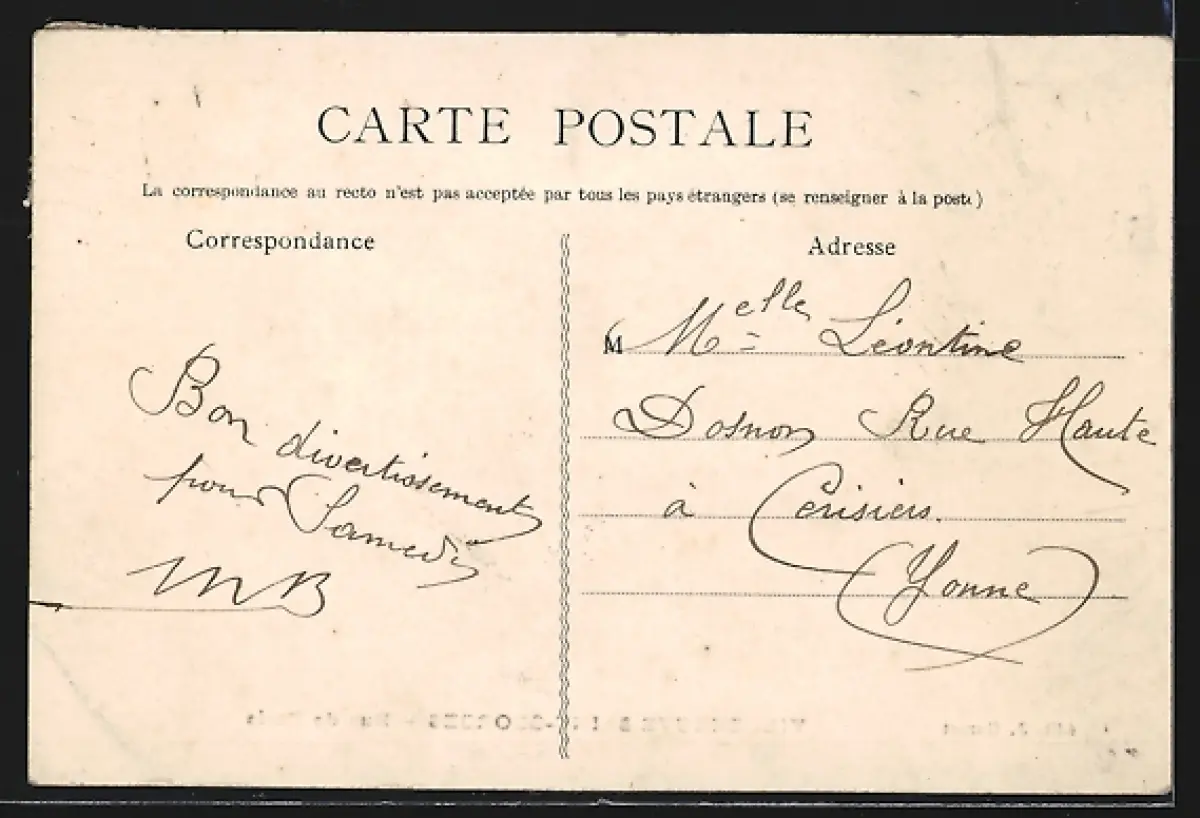 CARTE POSTALE
La correspondance au recto n'est pas acceptée par tous les pays étrangers (se renseigner à la poste)
Correspondance
Adresse
Bon divertissement
pour Samedi
MB
M Melle Léontine
Dosnon Rue Haute
à Cerisiers
(Yonne)